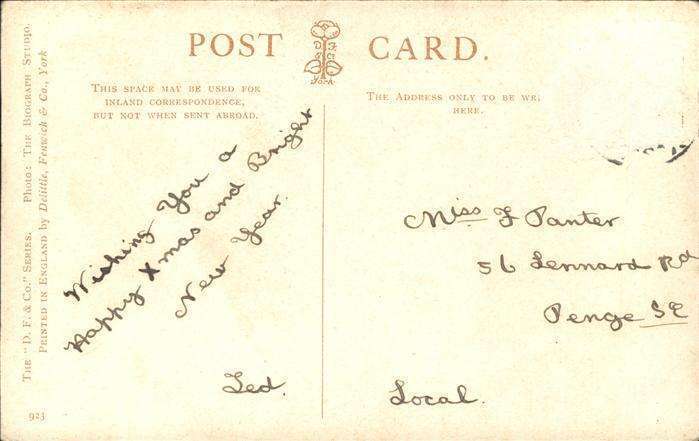 POST CARD.
THIS SPACE MAY BE USED FOR
INLAND CORRESPONDENCE,
BUT NOT WHEN SENT ABROAD.
THE ADDRESS ONLY TO BE WR
HERE.
THE "D. F. & CO." SERIES. Photo: THE BIOGRAPH STUDIO.
PRINTED IN ENGLAND by Delittle, Fenwick & Co., York
D F & Co
York
Wishing You a
Happy Xmas and Bright
New Year.
Ted.
Miss F Panter
56 Lennard Rd
Penge SE
Local.
923